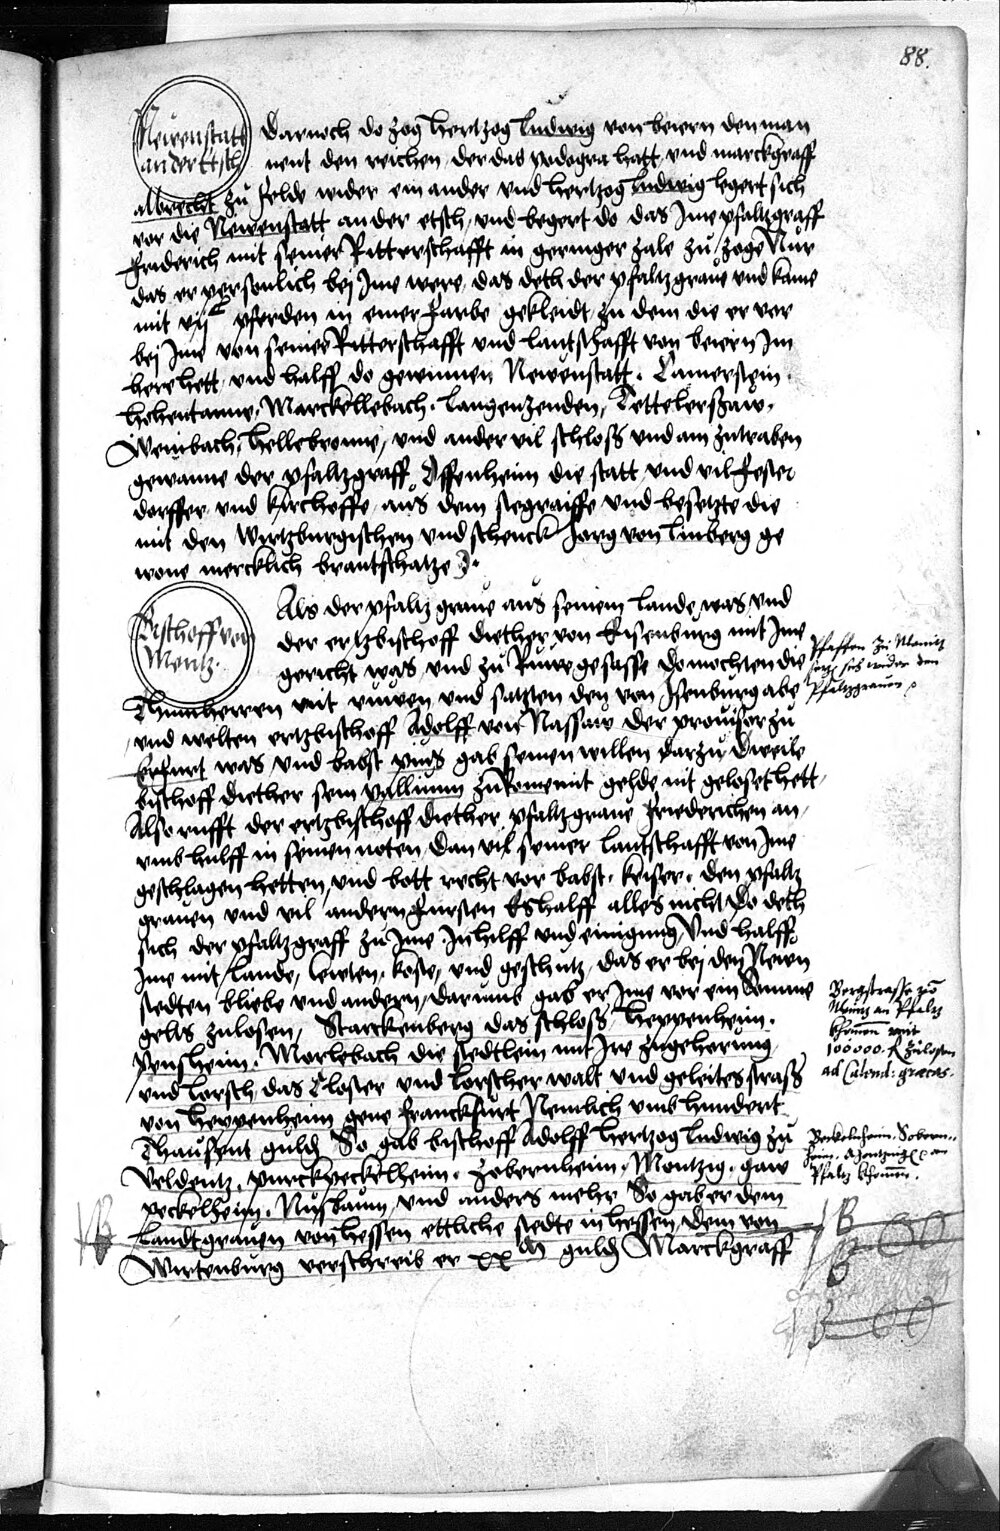 88.
Newenstatt
an der Etsch
Darnoch do zog hertzog Ludwig von beiern den man
nent den reichen, der das podogra hatt, und marckgraff
albrecht zu felde wider ein ander und hertzog Ludwig legert sich
vor die Newenstatt an der etsch, und begert do das Ime pfaltzgraff
Friderich mit seiner Ritterschafft in geringer zale zu zoge Nur
das er personlich bej Ime were, das deth der pfaltzgrave und kame
mit vijc pferden in einer farbe gekleidt, zu dem die er vor
bej Ime von seiner Ritterschafft und lantschafft von beiern Im
here hett, und halff do gewinnen Newenstatt. Camerstein.
hohentanne, Marckellebach. langenzenden,
Weinbach, hellebronne, und ander vil schloss und am zutraben
gewanne der pfaltzgraff Offenheim die statt und vil fester
dorffer und kirchoffe, aus dem stegraiffe und besetzte die
mit den Wirtzburgischen und schenck Jorg von limberg ge
wone mercklich brantschatze
Bischoff von
Mentz.
Als der pfaltzgrave aus seinem lande was und
der ertzbischoff diether von Eisenburg mit Ime
gericht was, und zu Ruwe gesasse do mochten die
Thumherren nit ruwen und satzten den von Isenburg abe
und welten ertzbischoff Adolff von Nassaw der provisor zu
Erfurt was, und babst pius gab seinen willen darzu Dweile
bischoff diether sein pallium zu Rome mit gelde nit geloset hett,
Also rufft der ertzbischoff diether pfaltzgrave Friederichen an
umb hulff in seinen noten, dan vil seiner lantschafft von Ime
geschlagen hetten, und bott recht vor babst. keiser. den pfaltz
graven und vil andern fursten Es halff alles nicht Do deth
sich der pfaltzgraff zu Ime In hilff und einigung, Und halff
Ime mit lande, lewten, koste, und geschutz, das er bej den Newn
stedten bliebe und andern, darumb gab er Ime vor ein Summe
gelts zulosen, Starckenberg das schloss, heppenheim.
Pensheim. Morlebach die stedtlein mit Ire zugehorung
und lorsch, das Closter und lorscher walt und geleites strass
von heppenheim gene franckfurt Nemlich umb hundert
Thausent guld So gab bischoff Adolff hertzog ludwig zu
Veldentz, purckpeckelheim. Sobernheim. Montzig. gaw
peckelheim. Nussbaum, und anders mehr So gab er dem
Landtgraven von hessen ettliche stedte in hessen dem von
Wirtenburg verschreib er xxm guld Marckgraff
Pfaffen zu Maintz
setzen sich wider den
Pfaltzgraven
Bergstrasse von
Maintz an Pfaltz
khomen mit
100000. fl zulosen
ad Calend: graecas.
Beckelnheim. Sobern-
heim. Montzing an
Pfaltz khomen.